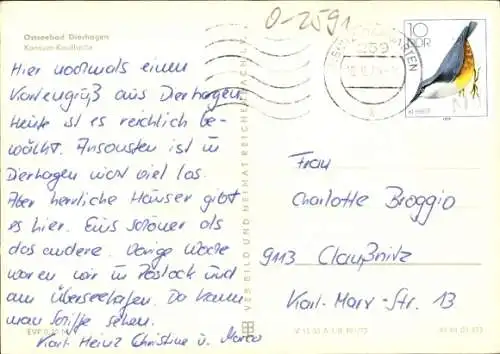 Ostseebad Dierhagen
Konsum-Kaufhalle
0-2591
10
DDR
259
Hier nochmals einen
Kartengruß aus Dierhagen.
Heute ist es reichlich be-
wölkt. Ansonsten ist in
Dierhagen nicht viel los.
Aber herrliche Häuser gibt
es hier. Eins schöner als
das andere. Vorige Woche
waren wir in Rostock und
am Überseehafen. Da kann
man Schiffe sehen.
Karl-Heinz Christine u. Marco
VEB BILD UND HEIMAT REICHENBACH I. V.
Frau
Charlotte Broggio
9113 Claußnitz
Karl-Marx-Str. 13